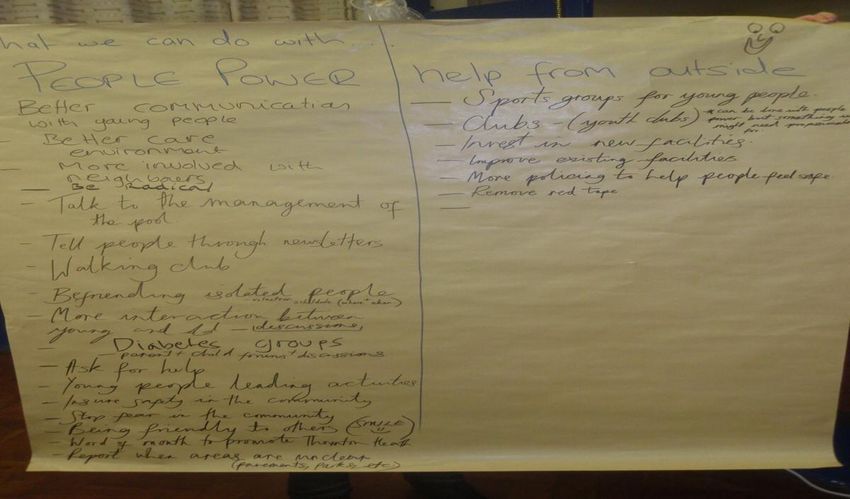 hat we can do with...
PEOPLE POWER
Better communication
with young people
- Better care
environment
- More involved with
neighbours
- Be Radical
- Talk to the management of
the pool
- Tell people through newsletters
- Walking club
- Befriending isolated people
- More interaction between
young and old - discussions,
- Diabetes groups
- parent + child forums + discussions
- Ask for help
- Young people leading activities
- Insure safety in the community
- Stop fear in the community
- Being friendly to others (SMILE)
- Word of mouth to promote Thornton Heath
- Report when areas are unclean
(pavements, parks, etc)
help from outside
- Sports groups for young people.
- Clubs - (youth clubs) * can be done with people
power but something
might need
- Invest in new facilities.
- Improve existing facilities
- More policing to help people feel safe.
- Remove red tape
-